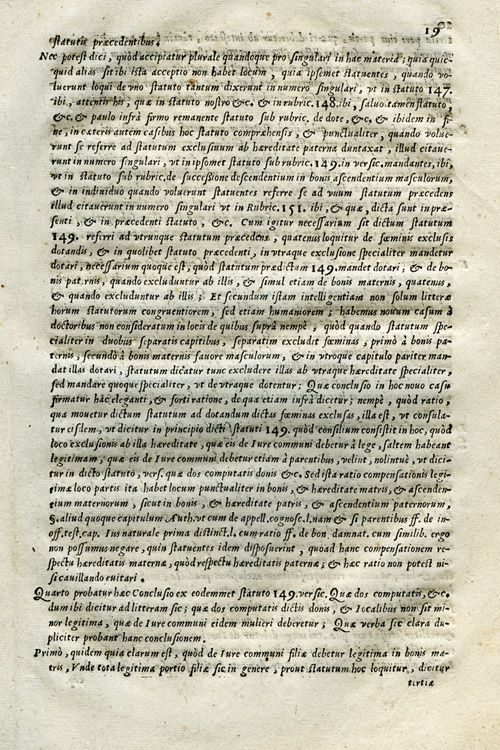 19
statutis præcedentibus.
Nec potest dici, quòd accipiatur plurale quandoque pro singulari in hac materia; quia quic-
quid alias sit ibi ista acceptio non habet locum, quia ipsimet statuentes, quando vo-
luerunt loqui de vno statuto tantum dixerunt in numero singulari, vt in statuto 147.
ibi, attentis his, quæ in statuto nostro &c. & in rubric. 148. ibi, saluo tamen statuto
&c. & paulo infrà firmo remanente statuto sub rubric. de dote, &c, & ibidem in fi-
ne, in cæteris autem casibus hoc statuto compræhensis, & punctualiter, quando volue-
runt se referre ad statutum exclusiuum ab hæreditate paterna duntaxat, illud citaue-
runt in numero singulari, vt in ipsomet statuto sub rubric. 149. in versic. mandantes, ibi,
vt in statuto sub rubric. de successione descendentium in bonis ascendentium masculorum,
& in indiuiduo quando voluerunt statuentes referre se ad vnum statutum præcedens
illud citauerunt in numero singulari vt in Rubric. 151. ibi, & quæ, dicta sunt in præ-
senti, & in præcedenti statuto, &c. Cum igitur necessarium sit dictum statutum
149. referri ad vtrunque statutum præcedens, quatenus loquitur de fœminis exclusis
dotandis, & in quolibet statuto præcedenti, in vtraque exclusione specialiter mandetur
dotari, necessarium quoque est, quòd statutum præd ctam 149. mandet dotari, & de bo-
nis paternis, quando excluduntur ab illis, & simul etiam de bonis maternis, quatenus,
& quando excluduntur ab illis; Et secundum istam intelligentiam non solum litteræ
horum statutorum congruentiorem, sed etiam humaniorem; habemus nouum casum à
doctoribus non consideratum in locis de quibus suprà nempè, quòd quando statutum spe-
cialiter in duobus separatis capitibus, separatim excludit fœminas, primò à bonis pa-
ternis, secundò à bonis maternis fauore masculorum, & in vtroque capitulo pariter man-
dat illas dotari, statutum dicatur tunc excludere illas ab vtraque hæreditate specialiter,
sed mandare quoque specialiter, vt de vtraque dotentur; Quæ conclusio in hoc nouo casu
firmatur hàc eleganti, & forti ratione, de qua etiam infrà dicetur; nempè, quòd ratio,
qua mouetur dictum statutum ad dotandum dictas fœminas exclusas, illa est, vt consula-
tur eisdem, vt dicitur in principio dicti statuti 149. quòd consilium consistit in hoc, quòd
loco exclusionis ab illa hæreditate, quæ eis de Iure communi debetur à lege, saltem habeant
legitimam; quæ eis de Iure communi debetur etiam à parentibus, velint, nolintuè, vt dici-
tur in dicto statuto, vers. quæ dos computatis donis &c. Sed ista ratio compensationis legi-
timæ loco partis ita habet locum punctualiter in bonis, & hæreditate matris, & ascenden-
tium maternorum, sicut in bonis, & hæreditate patris, & ascendentium paternorum,
§. aliud quoque capitulum Æuth. vt cum de appell. cognosc. l. nam & si parentibus ff. de in-
off. test. cap. Ius naturale prima distinct. l. cum ratio ff. de bon. damnat. cum similib. ergo
non possumus negare, quin statuentes idem disposuerint, quoad hanc compensationem re-
spectu hæreditatis maternæ, quòd respectu hæreditatis paternæ; & hæc ratio non potest ni-
si cauillando euitari.
Quarto probatur hæc Conclusio ex eodemmet statuto 149. versic. Quæ dos computatis, &c.
dum ibi dicitur ad litteram sic; quæ dos computatis dictis donis, & Iocalibus non sit mi-
nor legitima, quæ de Iure communi eidem mulieri deberetur; Quæ verba sic clara du-
pliciter probant hanc conclusionem.
Primò, quidem quia clarum est, quòd de Iure communi filiæ debetur legitima in bonis ma-
tris, Vnde tota legitima portio filiæ sic in genere, prout statutum hoc loquitur, dicitur
tertia